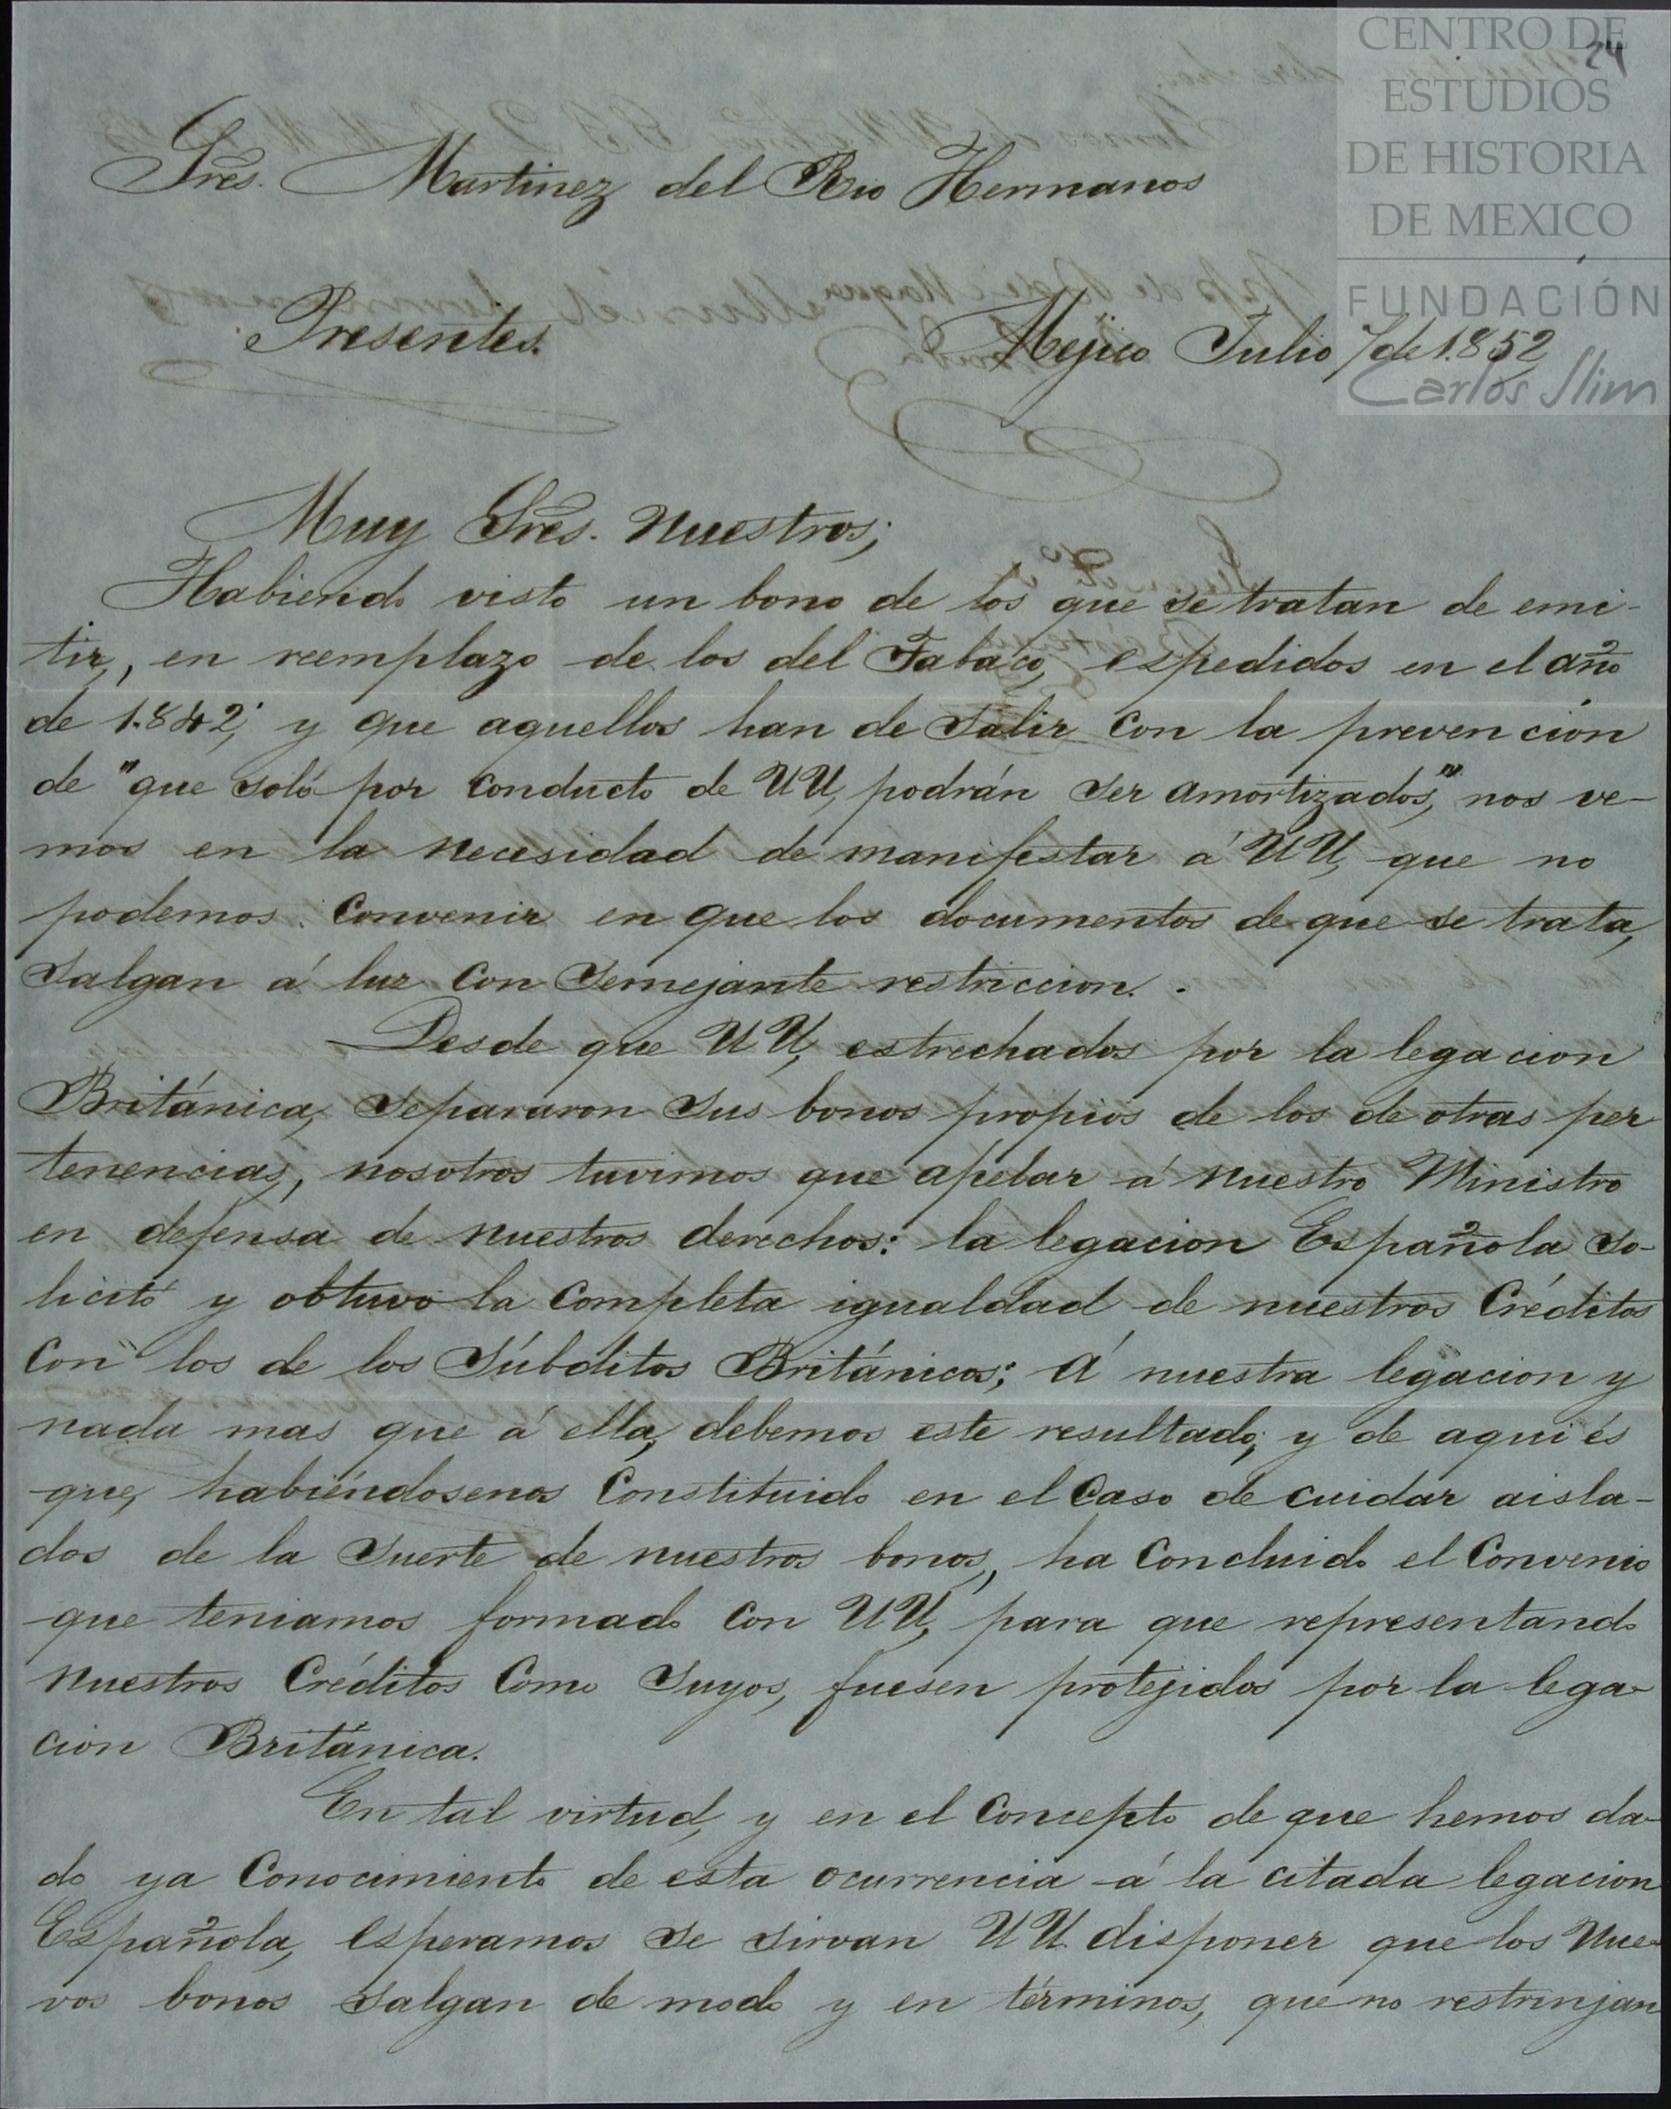 CENTRO DE
ESTUDIOS
DE HISTORIA
DE MEXICO
FUNDACIÓN
Carlos Slim
24
Sres. Martinez del Rio Hermanos
Presentes. Mejico Julio 7 de 1.852
Muy Sres. nuestros;
Habiendo visto un bono de los que se tratan de emi-
tir, en reemplazo de los del Tabaco, espedidos en el año
de 1.842; y que aquellos han de salir con la prevencion
de "que solo por conducto de UU, podrán ser amortizados," nos ve-
mos en la necesidad de manifestar á UU, que no
podemos convenir en que los documentos de que se trata,
salgan á luz con semejante restriccion.
Desde que UU, estrechados por la legacion
Británica, separaron sus bonos propios de los de otras per
tenencias, nosotros tuvimos que apelar á nuestro Ministro
en defensa de nuestros derechos: la legacion Española so-
licitó y obtuvo la completa igualdad de nuestros Créditos
con los de los Súbditos Británicos; á nuestra legacion y
nada mas que á ella, debemos este resultado; y de aqui és
que, habiéndosenos constituido en el caso de cuidar aisla-
dos de la suerte de nuestros bonos, ha concluido el convenio
que teniamos formado con UU, para que representando
nuestros Créditos como suyos, fuesen protejidos por la lega-
cion Británica.
En tal virtud, y en el concepto de que hemos da-
do ya conocimiento de esta ocurrencia á la citada legacion
Española, esperamos se sirvan UU. disponer que los nue-
vos bonos salgan de modo y en términos, que no restrinjan